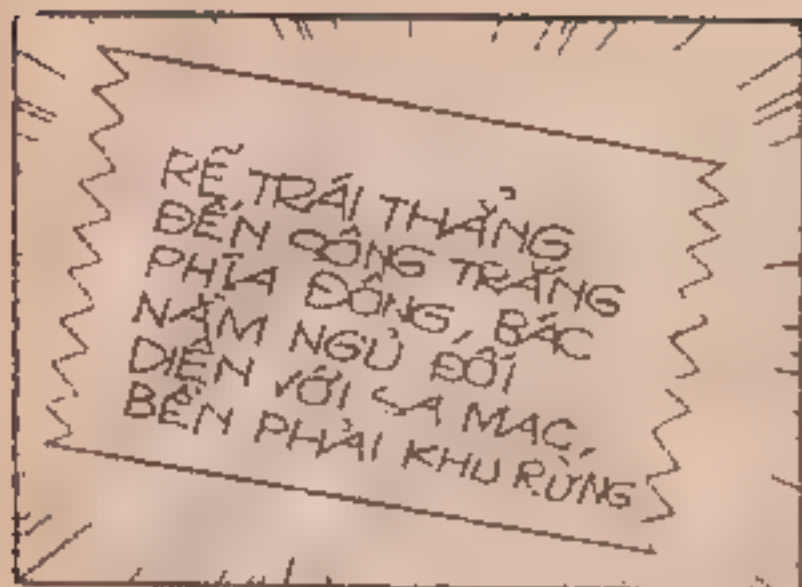 RẼ TRÁI THẲNG
ĐẾN SÔNG TRẮNG
PHÍA ĐÔNG, BÁC
NẰM NGỦ ĐỐI
DIỆN VỚI SA MẠC,
BÊN PHẢI KHU RỪNG